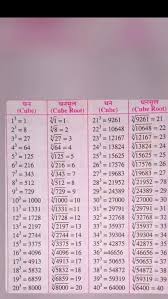 घन घनमूल घन घनमूल
(Cube) (Cube Root) (Cube) (Cube Root)
1³ = 1 ∛1 = 1 21³ = 9261 ∛9261 = 21
2³ = 8 ∛8 = 2 22³ = 10648 ∛10648 = 22
3³ = 27 ∛27 = 3 23³ = 12167 ∛12167 = 23
4³ = 64 ∛64 = 4 24³ = 13824 ∛13824 = 24
5³ = 125 ∛125 = 5 25³ = 15625 ∛15625 = 25
6³ = 216 ∛216 = 6 26³ = 17576 ∛17576 = 26
7³ = 343 ∛343 = 7 27³ = 19683 ∛19683 = 27
8³ = 512 ∛512 = 8 28³ = 21952 ∛21952 = 28
9³ = 729 ∛729 = 9 29³ = 24389 ∛24389 = 29
10³ = 1000 ∛1000 = 10 30³ = 27000 ∛27000 = 30
11³ = 1331 ∛1331 = 11 31³ = 29791 ∛29791 = 31
12³ = 1728 ∛1728 = 12 32³ = 32768 ∛32768 = 32
13³ = 2197 ∛2197 = 13 33³ = 35937 ∛35937 = 33
14³ = 2744 ∛2744 = 14 34³ = 39304 ∛39304 = 34
15³ = 3375 ∛3375 = 15 35³ = 42875 ∛42875 = 35
16³ = 4096 ∛4096 = 16 36³ = 46656 ∛46656 = 36
17³ = 4913 ∛4913 = 17 37³ = 50653 ∛50653 = 37
18³ = 5832 ∛5832 = 18 38³ = 54872 ∛54872 = 38
19³ = 6859 ∛6859 = 19 39³ = 59319 ∛59319 = 39
20³ = 8000 ∛8000 = 20 40³ = 64000 ∛6400 = 40